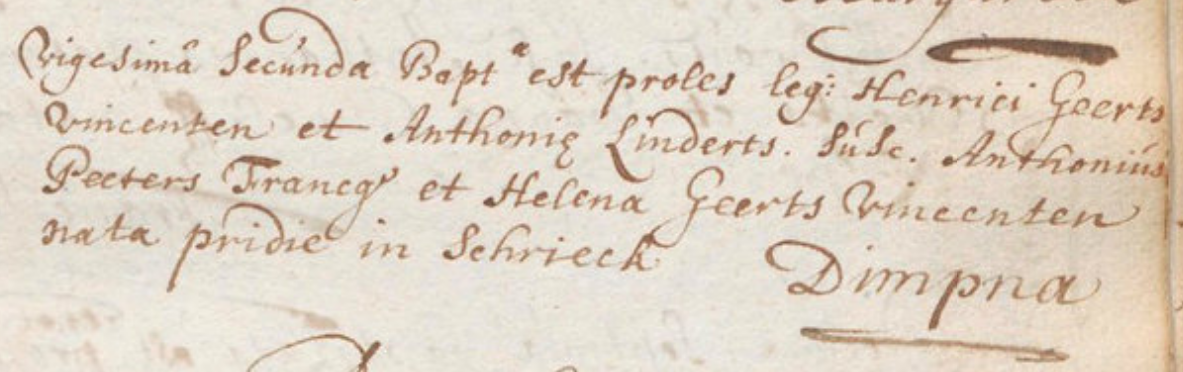 Vigesimâ Secúnda Bapt.ª est proles leg: Henrici Geerts
Vincenten et Anthonię Linderts. Súsc. Anthoniús
Peeters et Helena Geerts Vincenten
nata pridie in Schrieck
Dimpna